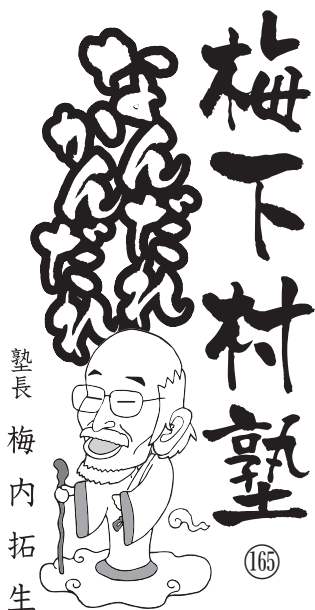 梅下村塾
165
なんだれ
かんだれ
塾長 梅内拓生